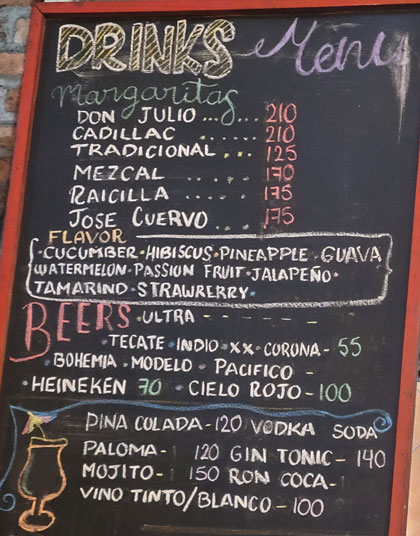 DRINKS Menu
Margaritas
DON JULIO ...... 210
CADILLAC ...... 210
TRADICIONAL .... 125
MEZCAL .... 170
RAICILLA .... 175
JOSE CUERVO .... 175
FLAVOR
·CUCUMBER·HIBISCUS·PINEAPPLE·GUAVA
WATERMELON·PASSION FRUIT·JALAPEÑO·
TAMARIND·STRAWRERRY·
BEERS ·ULTRA - - - -
TECATE·INDIO·XX·CORONA- 55
·BOHEMIA·MODELO·PACIFICO -
·HEINEKEN 70 ·CIELO ROJO-100
PINA COLADA-120 VODKA SODA
PALOMA- 120 GIN TONIC- 140
MOJITO- 150 RON COCA-
VINO TINTO/BLANCO-100